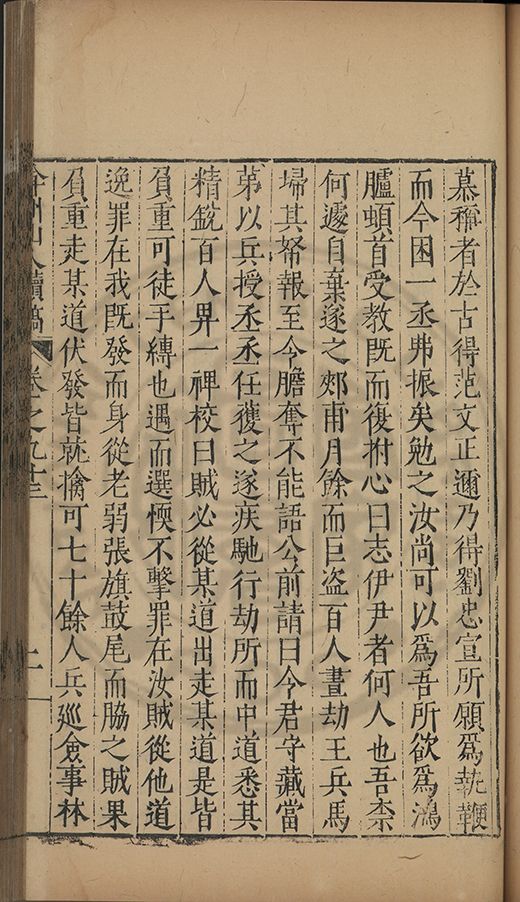 慕稱者於古得范文正邇乃得劉忠宣所願爲執鞭
而今困一丞弗振矣勉之汝尚可以爲吾所欲爲鴻
臚頓首受教既而復拊心曰志伊尹者何人也吾柰
何遽自棄逐之郟甫月餘而巨盗百人晝劫王兵馬
埽其帑報至今膽奪不能語公前請曰今君守藏當
苐以兵授丞丞任獲之遂疾馳行劫所而中道悉其
精銳百人畀一裨校曰賊必從某道出走某道是皆
負重可徒手縳也遇而選愞不擊罪在汝賊從他道
逸罪在我既發而身從老弱張旗鼓尾而脇之賊果
負重走某道伏發皆就擒可七十餘人兵巡僉事林
弇州山人續稿 卷之九十三